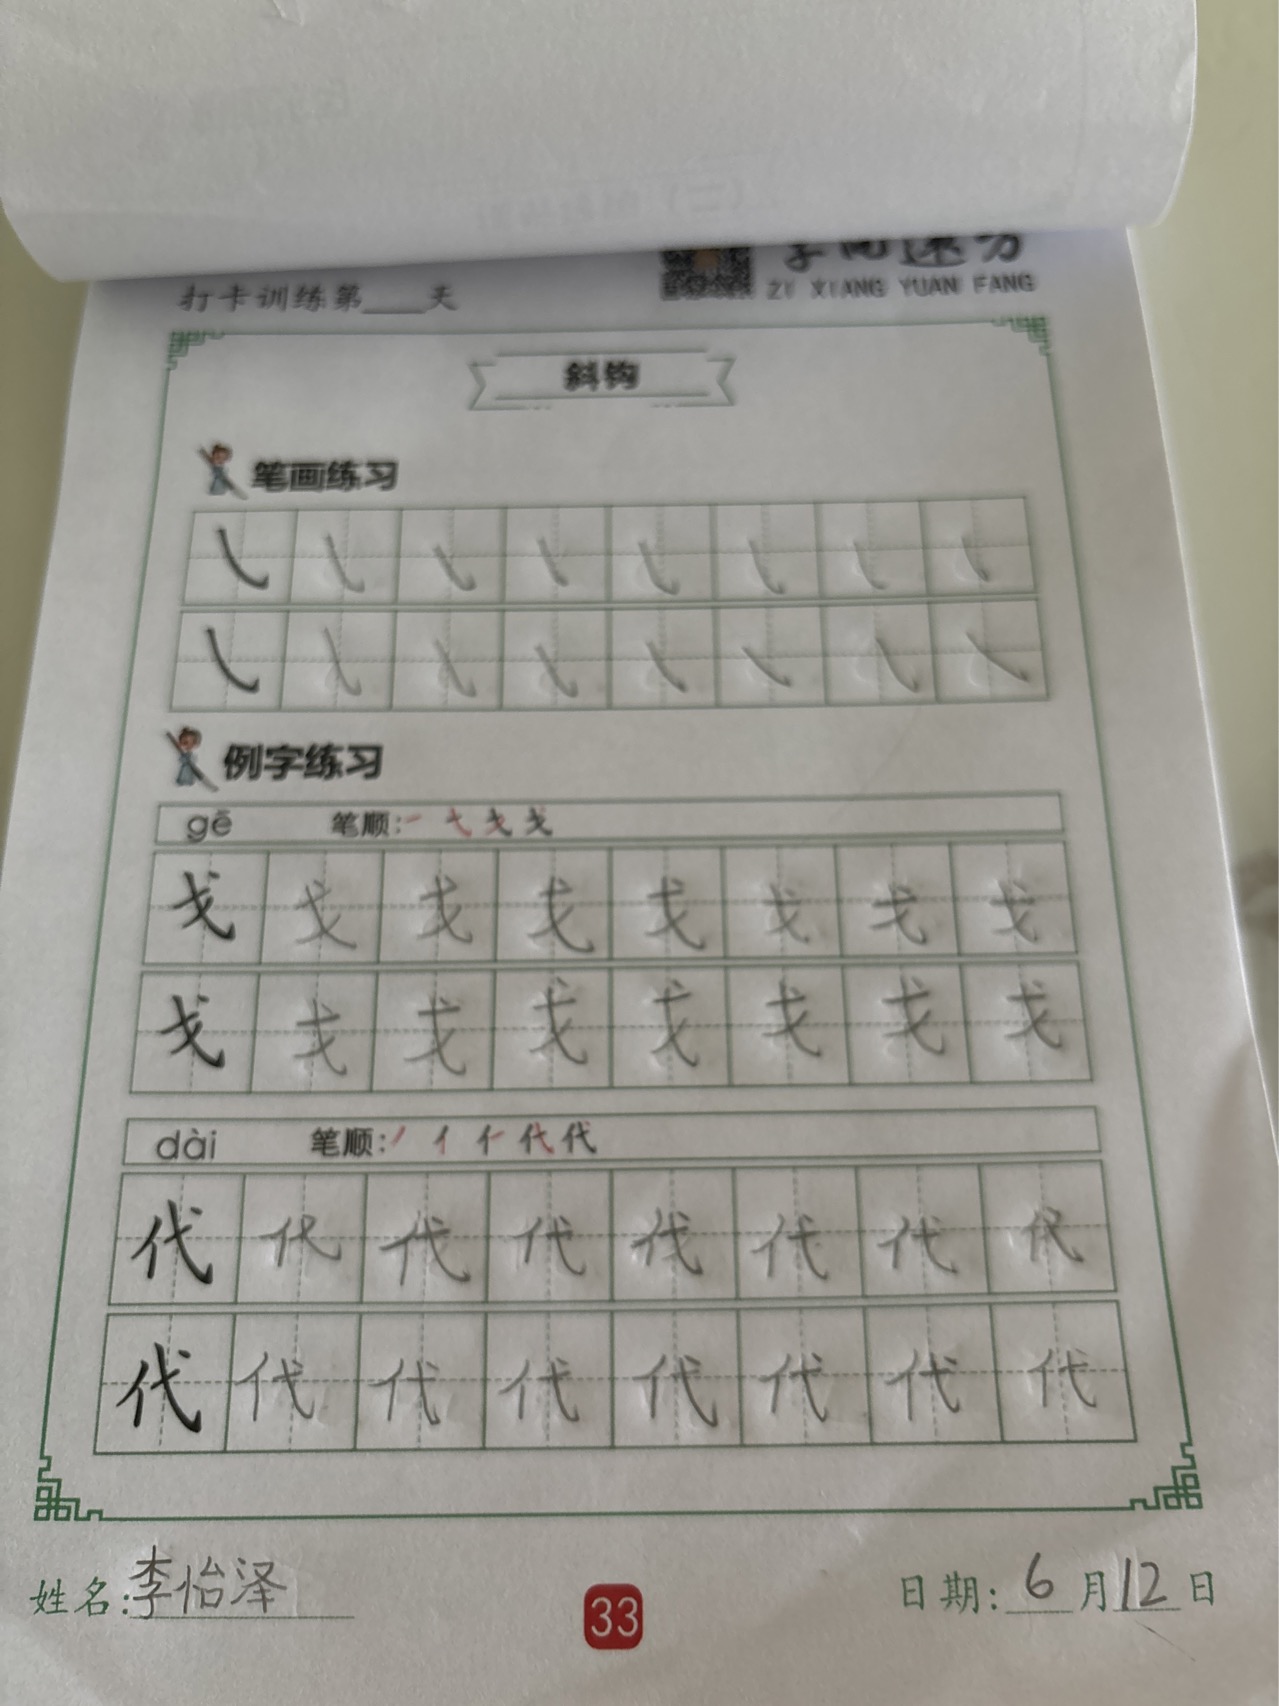 ZI XIANG YUAN FANG
打卡训练第___天
斜钩
笔画练习
例字练习
gē 笔顺:
戈 戈 戈 戈 戈 戈 戈 戈
戈 戈 戈 戈 戈 戈 戈 戈
dài 笔顺:
代 代 代 代 代 代 代 代
代 代 代 代 代 代 代 代
姓名:李怡泽
33
日期:6月12日